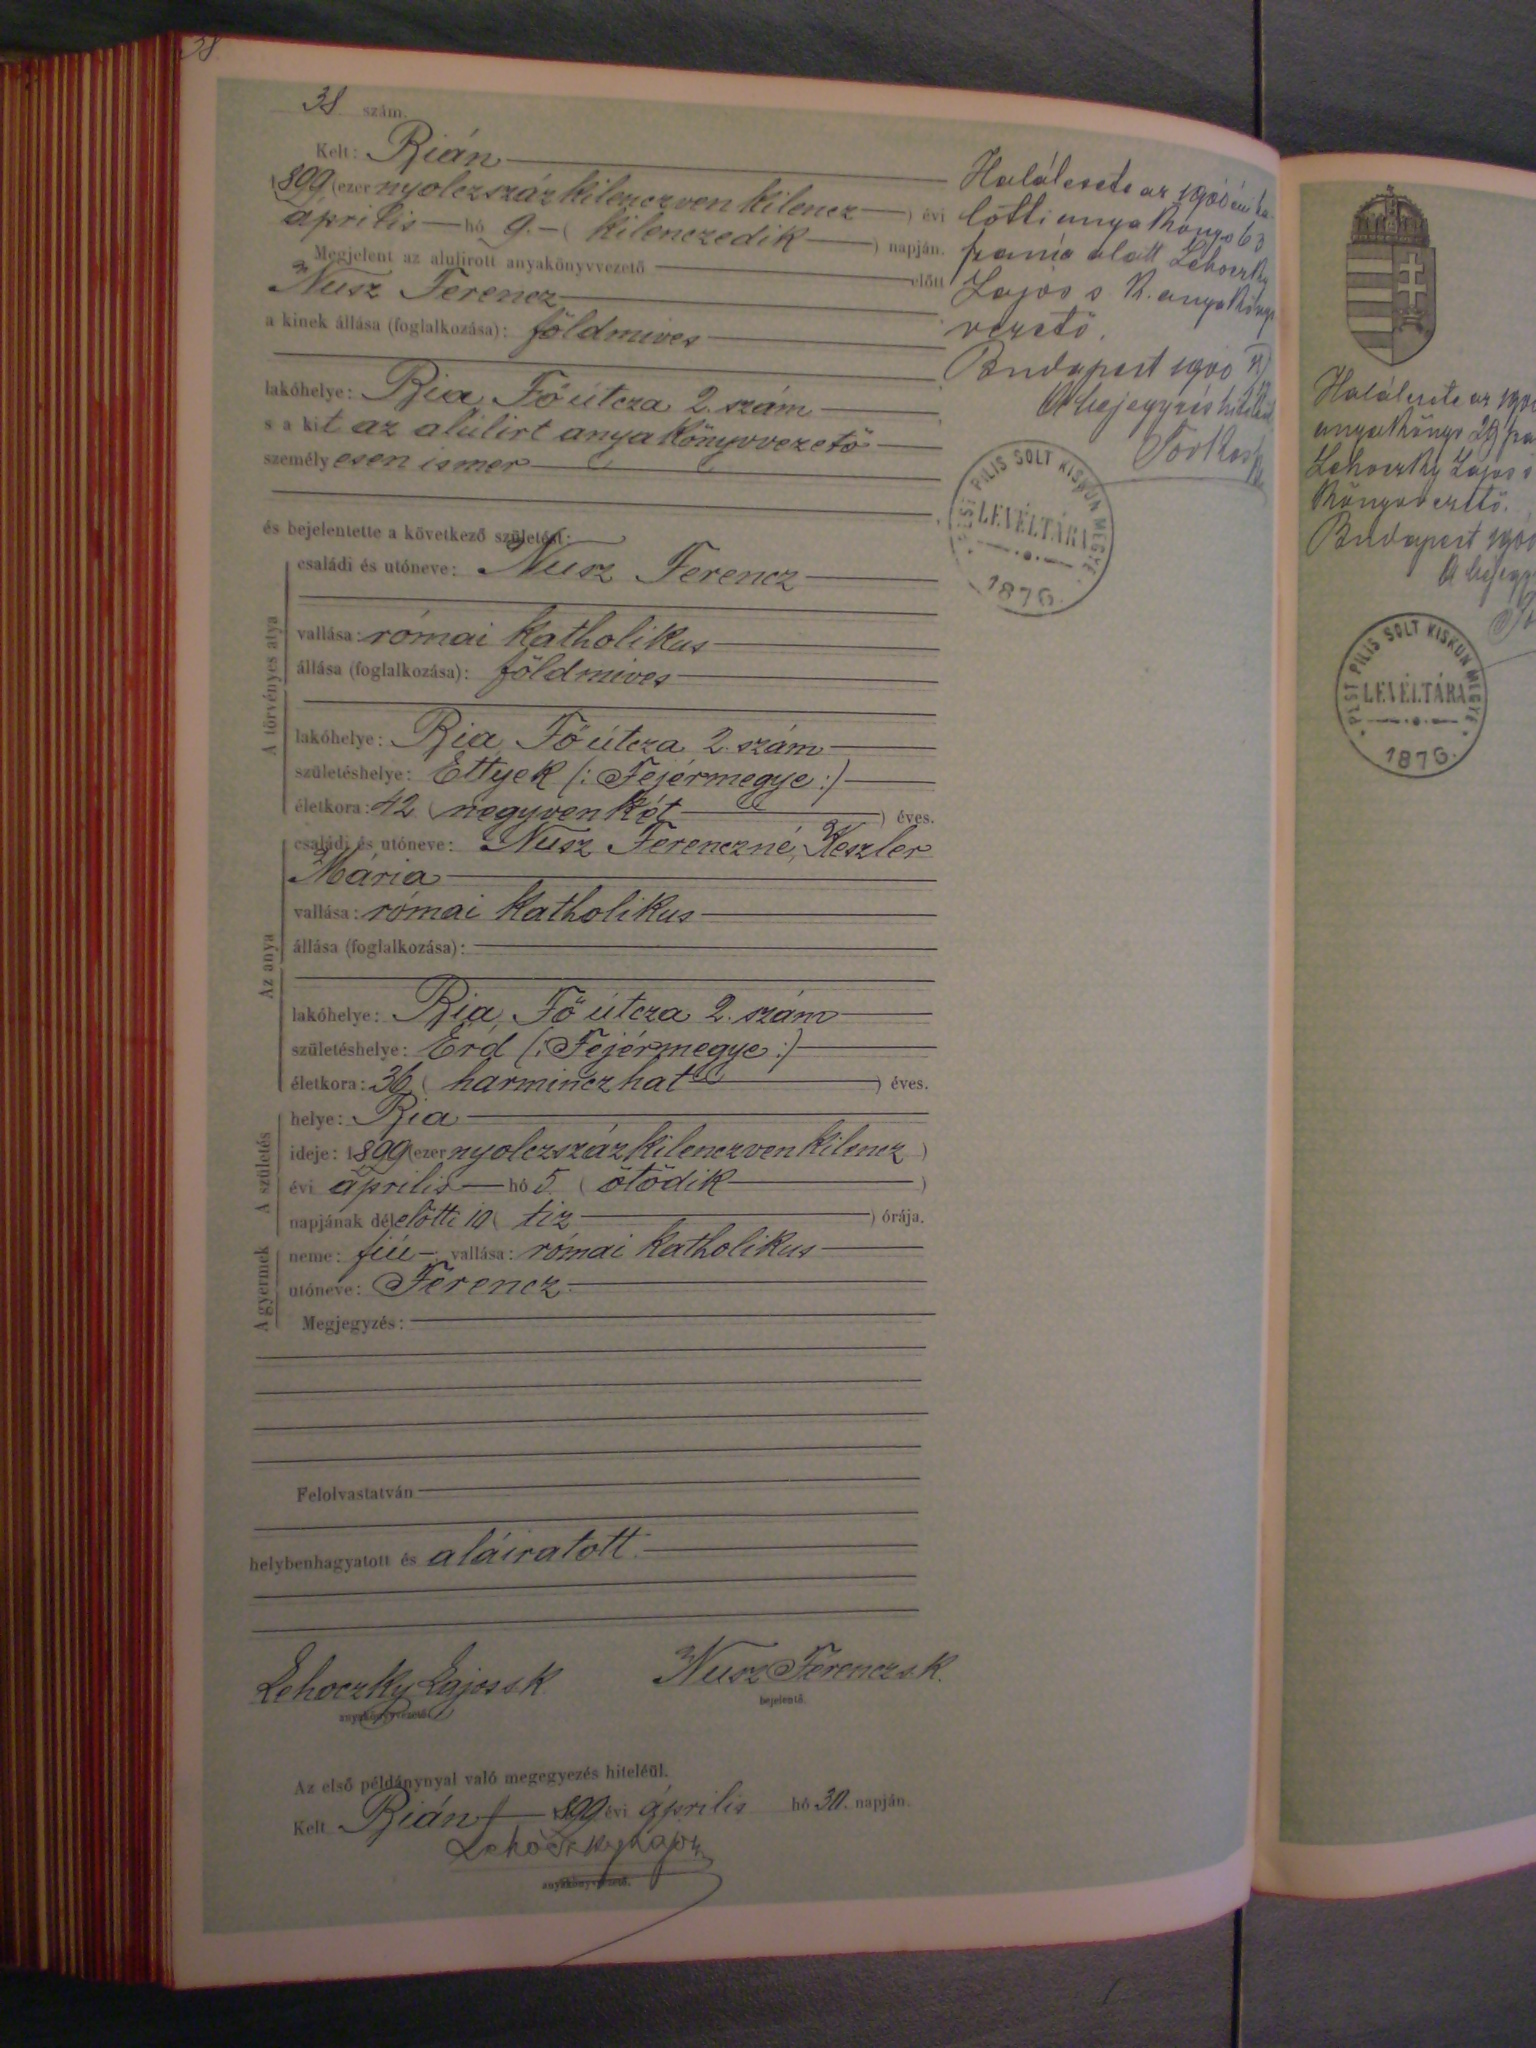 38
38 szám.
Kelt: Bián
1899 (ezer nyolczszázkilenczvenkilencz) évi
április hó 9. (kilenczedik) napján.
Megjelent az alulirott anyakönyvvezető előtt
Nusz Ferencz
a kinek állása (foglalkozása): földmives
lakóhelye: Bia Fő útcza 2. szám
s a kit az alúlirt anyakönyvvezető
személyesen ismer
és bejelentette a következő születést:
A törvényes atya
családi és utóneve: Nusz Ferencz
vallása: római katholikus
állása (foglalkozása): földmives
lakóhelye: Bia Fő útcza 2. szám
születéshelye: Ettyek (: Fejérmegye :)
életkora: 42 (negyvenkét) éves.
Az anya
családi és utóneve: Nusz Ferenczné, Keszler
Mária
vallása: római katholikus
állása (foglalkozása):
lakóhelye: Bia, Fő útcza 2. szám
születéshelye: Érd (: Fejérmegye :)
életkora: 36 (harminczhat) éves.
A születés
helye: Bia
ideje: 1899 (ezer nyolczszázkilenczvenkilencz)
évi április hó 5 (ötödik)
napjának délelőtti 10 (tiz) órája.
A gyermek
neme: fiú vallása: római katholikus
utóneve: Ferencz
Megjegyzés:
Felolvastatván
helybenhagyatott és aláiratott.
Lehoczky Lajos s.k.
anyakönyvvezető.
Nusz Ferencz s.k.
bejelentő.
Az első példánynyal való megegyezés hiteléül.
Kelt Bián 1899 évi április hó 30. napján.
Lehoczky Lajos
anyakönyvvezető.
Halálesete az 1900 évi ha-
lotti anyakönyv 63
alatt Lehoczky
Lajos s. k. anyakönyv
vezető.
Budapest 1900
A bejegyzés hiteléül
PEST PILIS SOLT KISKUN MEGYE
LEVÉLTÁRA
1876.
Halálesete az
anyakönyv 29
Lehoczky Lajos s
könyvvezető.
Budapest
A bejegy
PEST PILIS SOLT KISKUN MEGYE
LEVÉLTÁRA
1876.